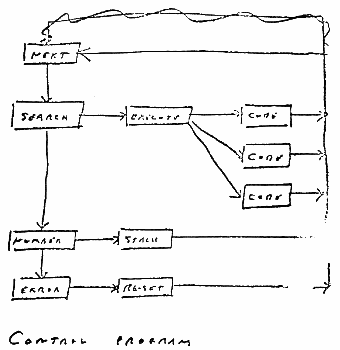 NEXT
SEARCH EXECUTE CODE
CODE
CODE
NUMBER STACK
ERROR RESET
CONTROL PROGRAM